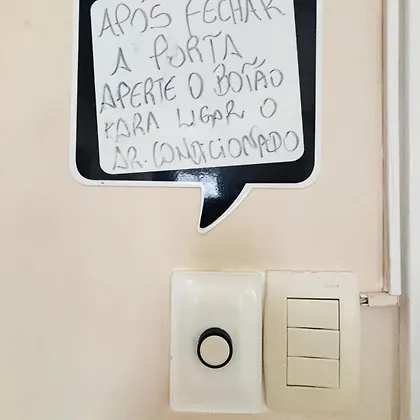 APÓS FECHAR
A PORTA
APERTE O BOTÃO
PARA LIGAR O
AR. CONDICIONADO